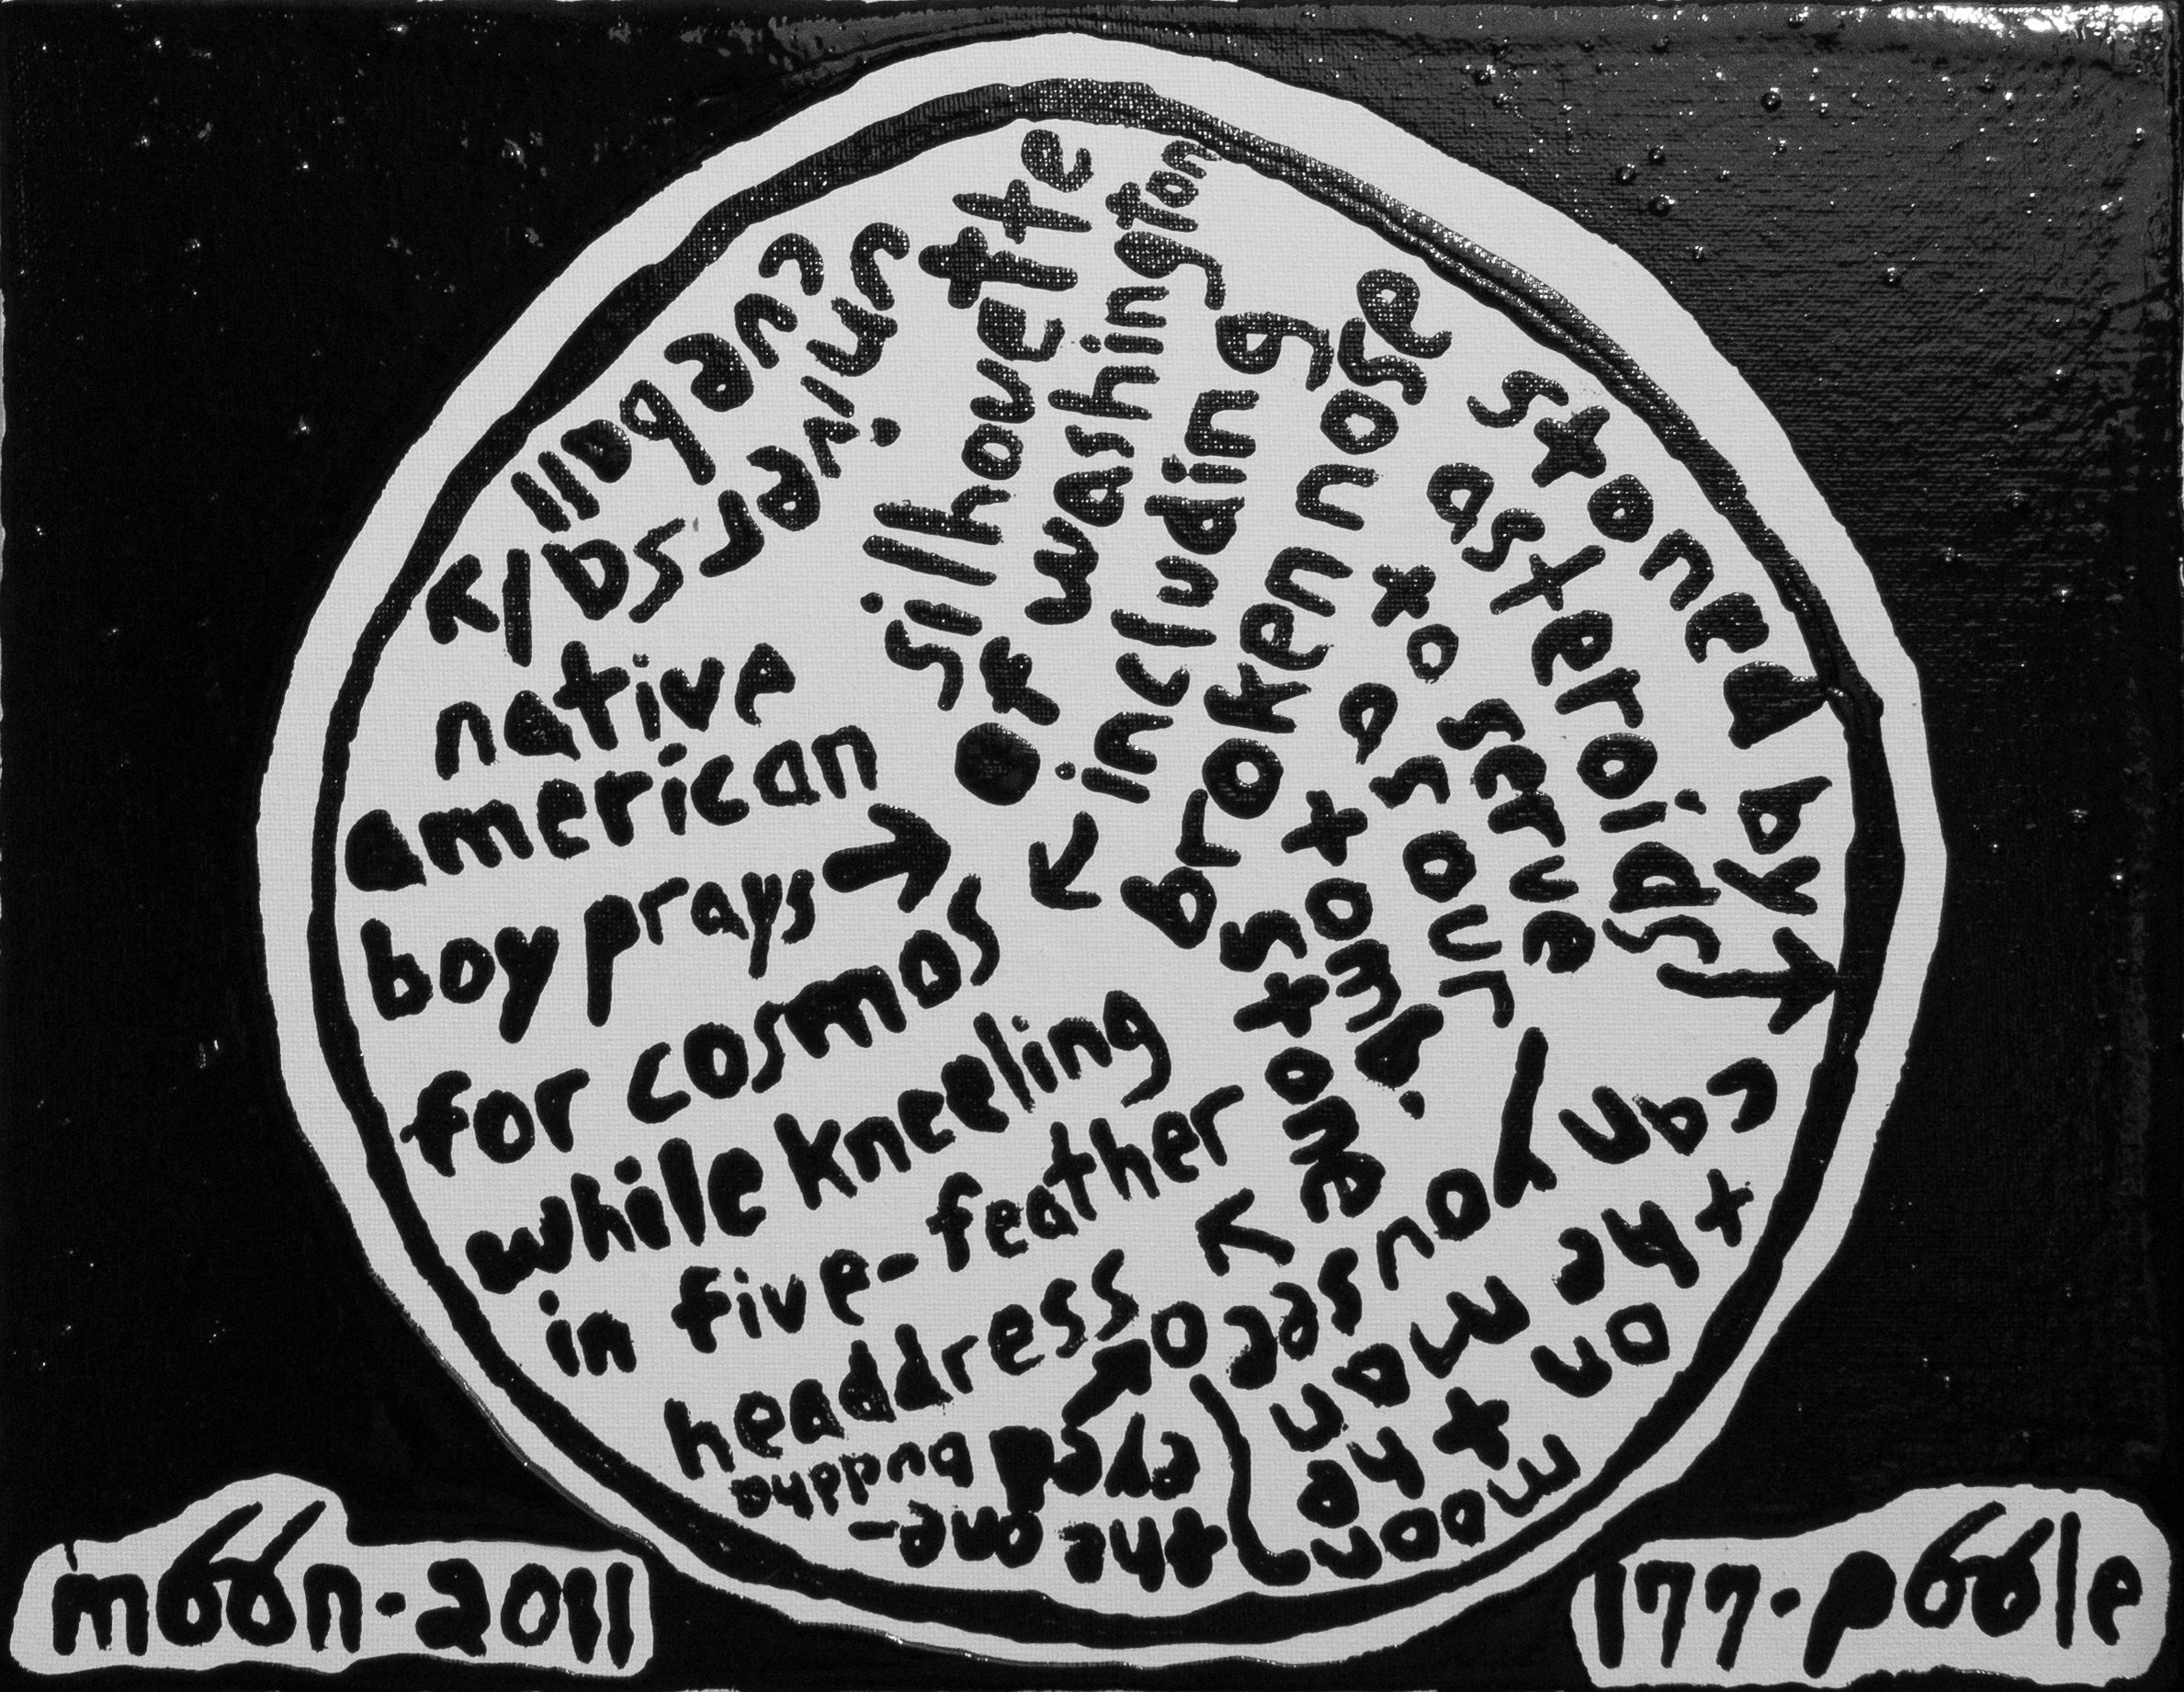 native
american
boy prays →
for cosmos
while kneeling
in five-feather
headdress
silhouette
of washington
including
broken nose
to serve
as our
tombstone.
stoned by
asteroids →
can you see
the man
on
the
moon
the one-
eyed buddha
moon·2011
177·poole